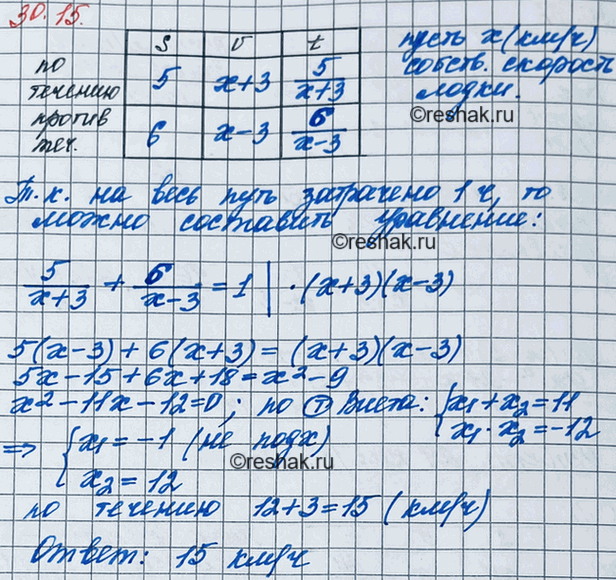 30.15.
S v t
по течению 5 x+3 5/(x+3)
против теч. 6 x-3 6/(x-3)
пусть x (км/ч)
собств. скорость
лодки.
©reshak.ru
Т.к. на весь путь затрачено 1 ч, то
можно составить уравнение:
©reshak.ru
5/(x+3) + 6/(x-3) = 1 | · (x+3)(x-3)
5(x-3) + 6(x+3) = (x+3)(x-3)
5x-15+6x+18=x²-9
x²-11x-12=0; по Т Виета: { x₁+x₂=11
x₁·x₂=-12
=> { x₁=-1 (не подх)
©reshak.ru
x₂=12
по течению 12+3=15 (км/ч)
Ответ: 15 км/ч